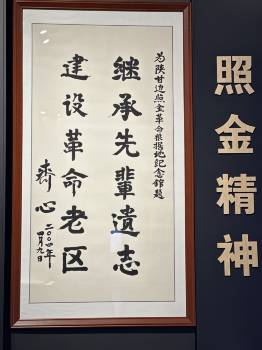 为陕甘边照金革命根据地纪念馆题
继承先辈遗志
建设革命老区
齐心
二〇〇四年
四月九日
照金精神